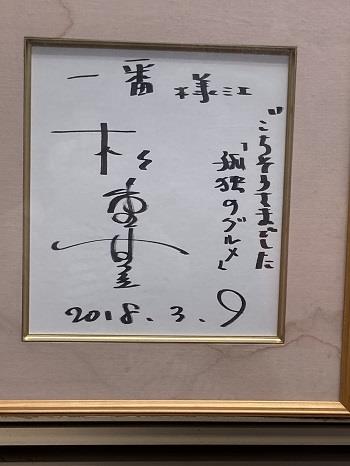 一番 様江
ごちそうさまでした
「孤独のグルメ」
松重豊
2018.3.9